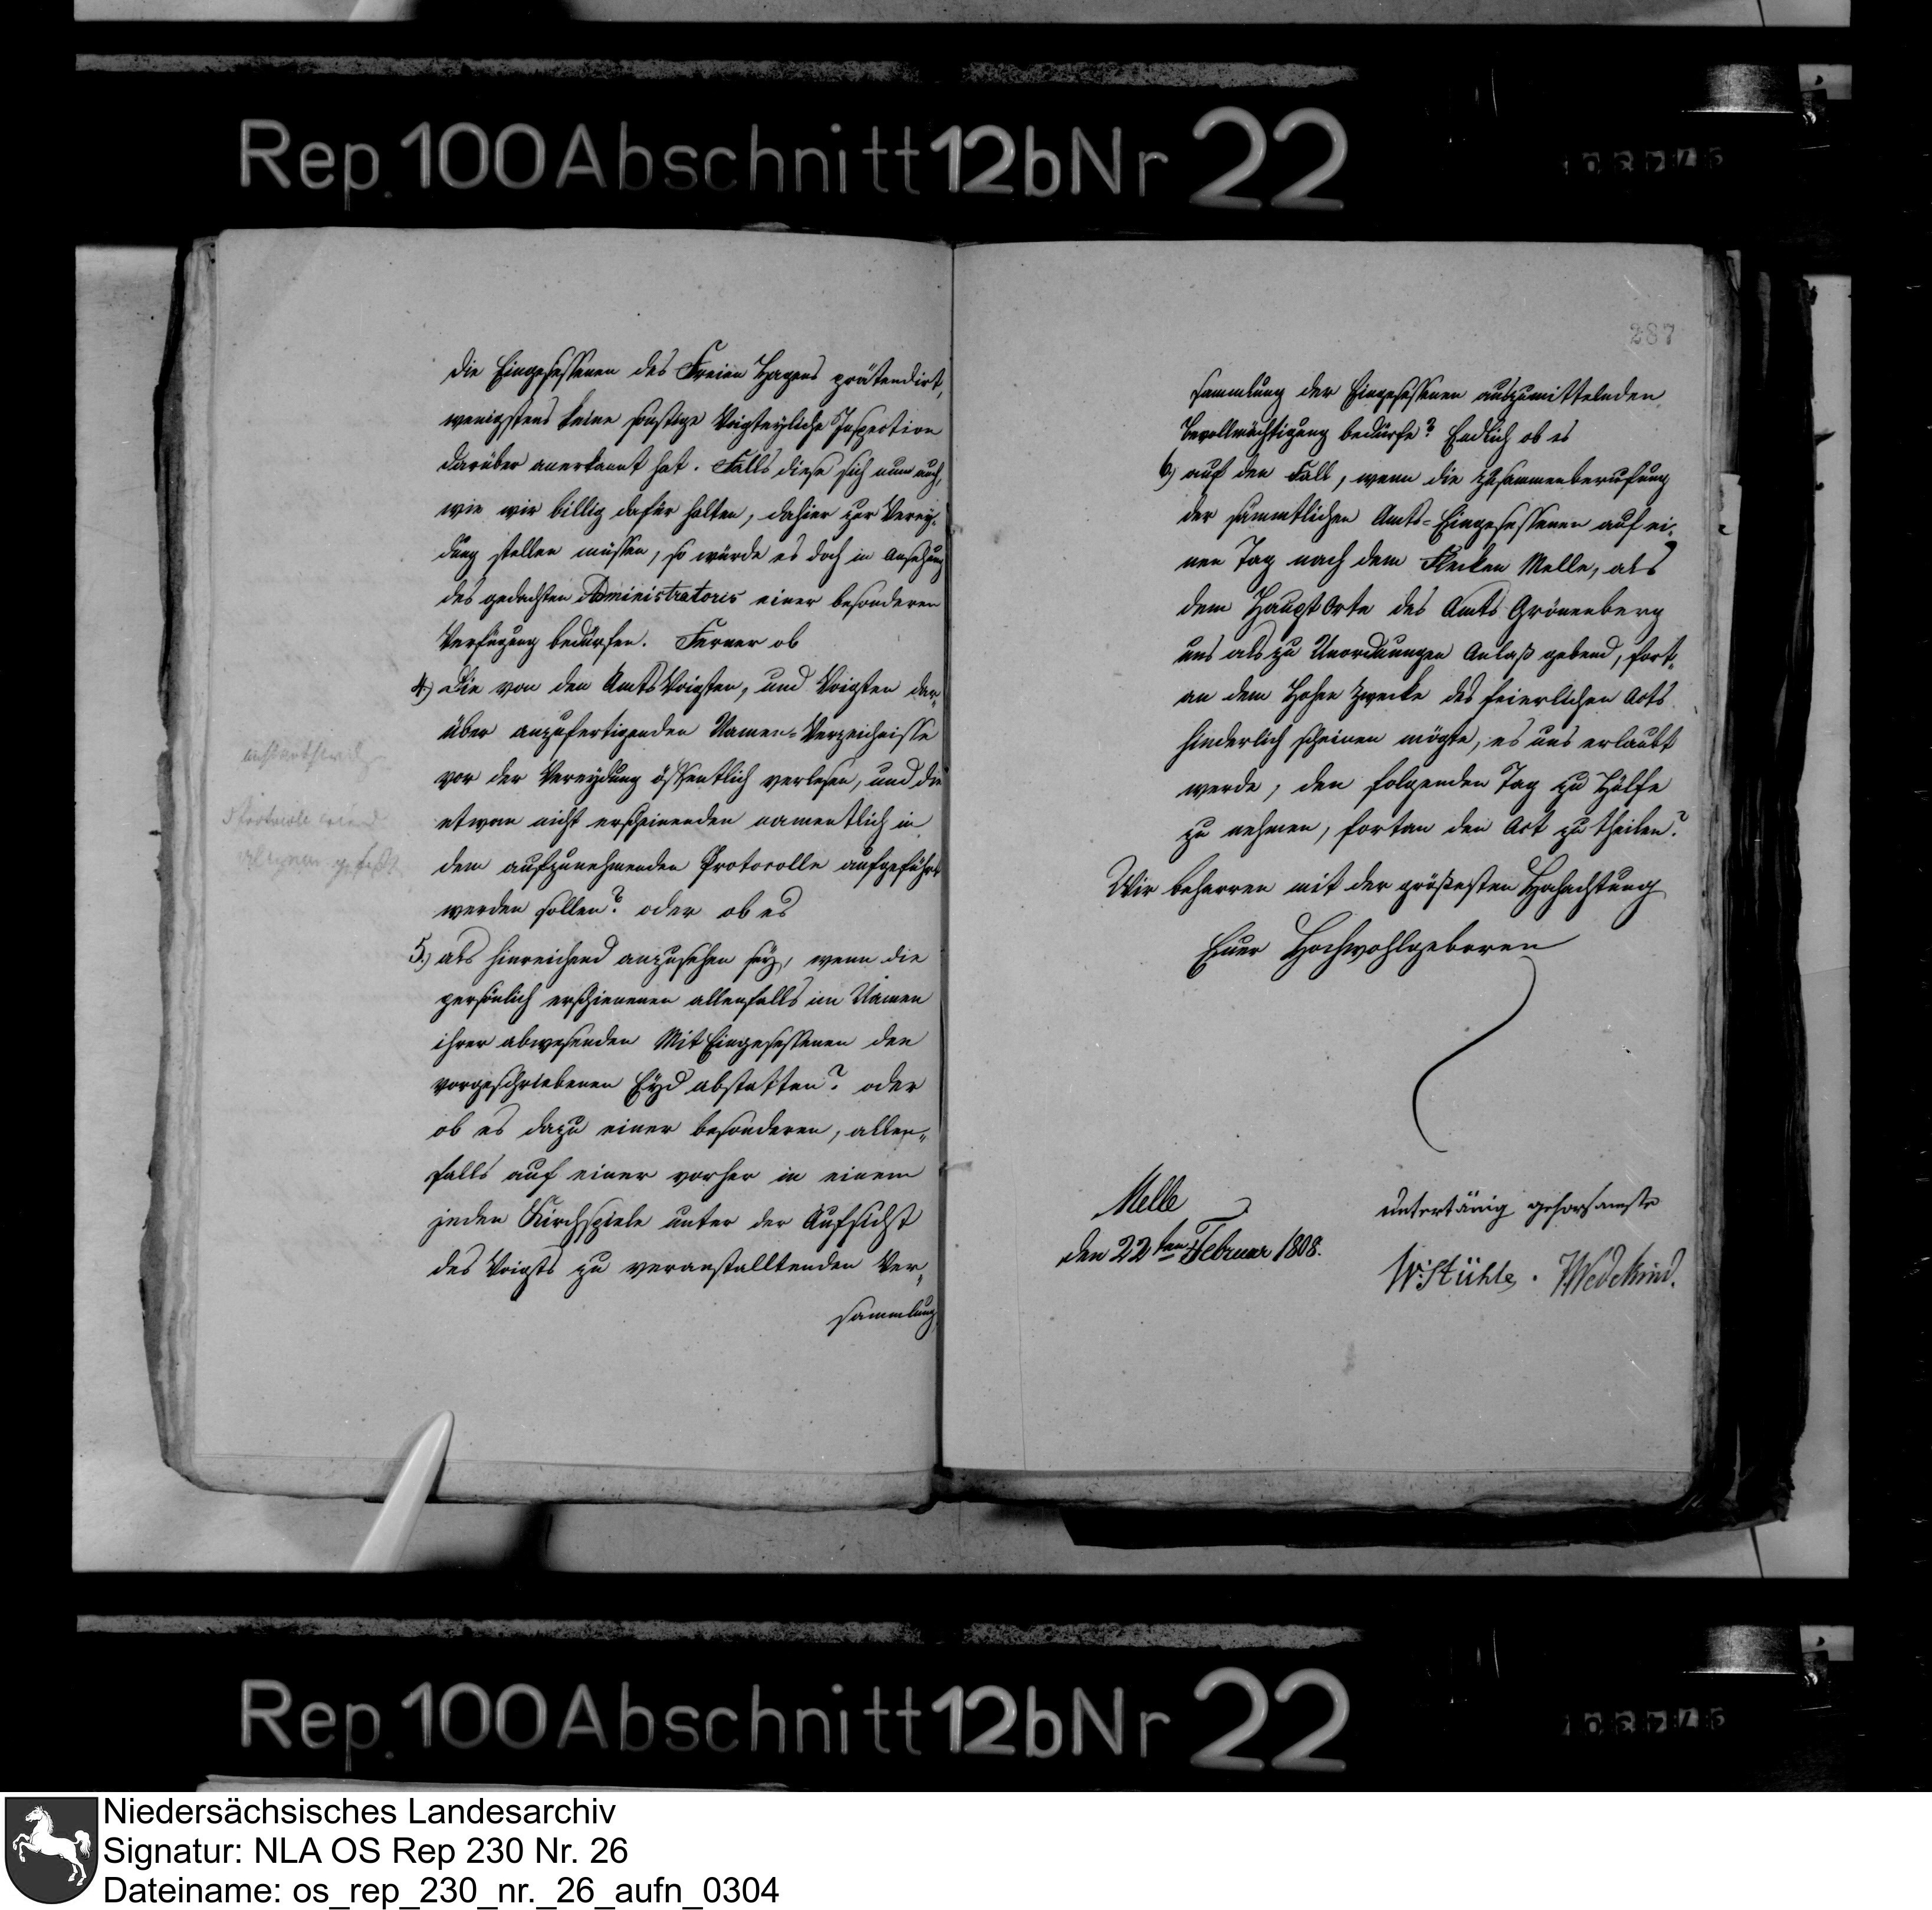 Rep. 100 Abschnitt 12b Nr 22
die Eingesessenen des Freien Hagens prätendirt,
wenigstens keine sonstige Voigteyliche Inspection
darüber anerkannt hat. Falls diese sich nun auch,
wie wir billig dafür halten, dahier zur Verey-
dung stellen müssen, so würde es doch in Ansehung
des gedachten Administratoris einer besonderen
Verfügung bedürfen. Ferner ob
4.) die von den AmtsVoigten, und Voigten dar-
über anzufertigenden Namen-Verzeichnisse
vor der Vereydung öffentlich verlesen, und die
etwan nicht erscheinenden namentlich in
dem aufzunehmenden Protocolle aufgeführt
werden sollen? oder ob es
5.) als hinreichend anzusehen sey, wenn die
persönlich erschienenen allenfalls im Namen
ihrer abwesenden MitEingesessenen den
vorgeschriebenen Eyd abstatten? oder
ob es dazu einer besonderen, allen-
falls auf einer vorher in einem
jeden Kirchspiele unter der Aufsicht
des Voigts zu veranstalltenden Ver-
sammlung
287
sammlung der Eingesessenen auszumittelnden
Bevollmächtigung bedürfe? Endlich ob es
6.) auf den Fall, wenn die Zusammenberufung
der sämmtlichen Amts-Eingesessenen auf ei-
nen Tag nach dem Flecken Melle, als
dem HauptOrte des Amts Grönenberg
uns als zu Unordnungen Anlaß gebend, fort-
an dem Hohen Zwecke des feierlichen Acts
hinderlich scheinen mögte, es uns erlaubt
werde, den folgenden Tag zu Hülfe
zu nehmen, fortan den Act zu theilen?
Wir beharren mit der größesten Hochachtung
Euer Hochwohlgeboren
Melle
den 22ten Februar 1808.
untertänig gehorsamste
Stühle. Wedekind.
Rep. 100 Abschnitt 12b Nr 22
Niedersächsisches Landesarchiv
Signatur: NLA OS Rep 230 Nr. 26
Dateiname: os_rep_230_nr._26_aufn_0304